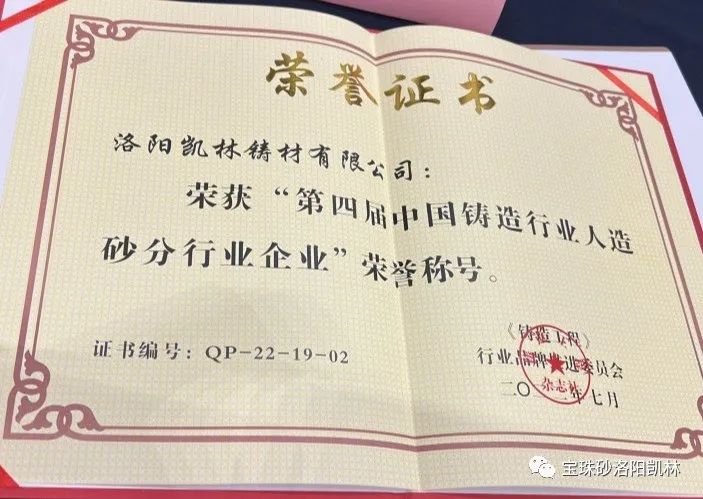 荣誉证书
洛阳凯林铸材有限公司:
荣获“第四届中国铸造行业人造
砂分行业企业”荣誉称号。
证书编号:QP-22-19-02
《铸造工程》
行业品牌推进委员会
二〇二二年七月
杂志社
宝珠砂洛阳凯林